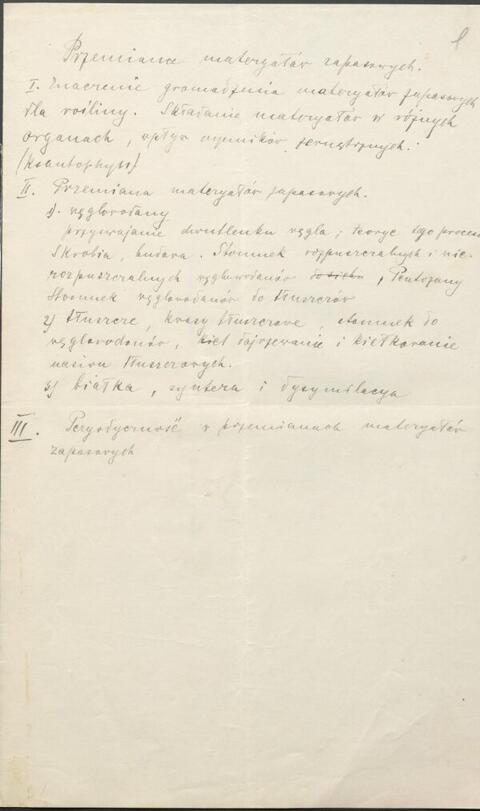 Przemiana materyałów zapasowych.
I. Znaczenie gromadzenia materyałów zapasowych
dla rośliny. Składanie materyałów w różnych
organach, wpływ czynników zewnętrznych.
(Ksantophyl)
II. Przemiana materyałów zapasowych.
1). węglowodany
przyswajanie dwutlenku węgla; teorye tego procesu
Skrobia, budowa. Stosunek rozpuszczalnych i nie-
rozpuszczalnych węglowodanów do siebie, Pentozany
Stosunek węglowodanów do tłuszczów
2) tłuszcze, kwasy tłuszczowe, stosunek do
węglowodanów, dojrzewanie i kiełkowanie
nasion tłuszczowych.
3) białka, synteza i dysymilacya
III. Peryodyczność w przemianach materyałów
zapasowych